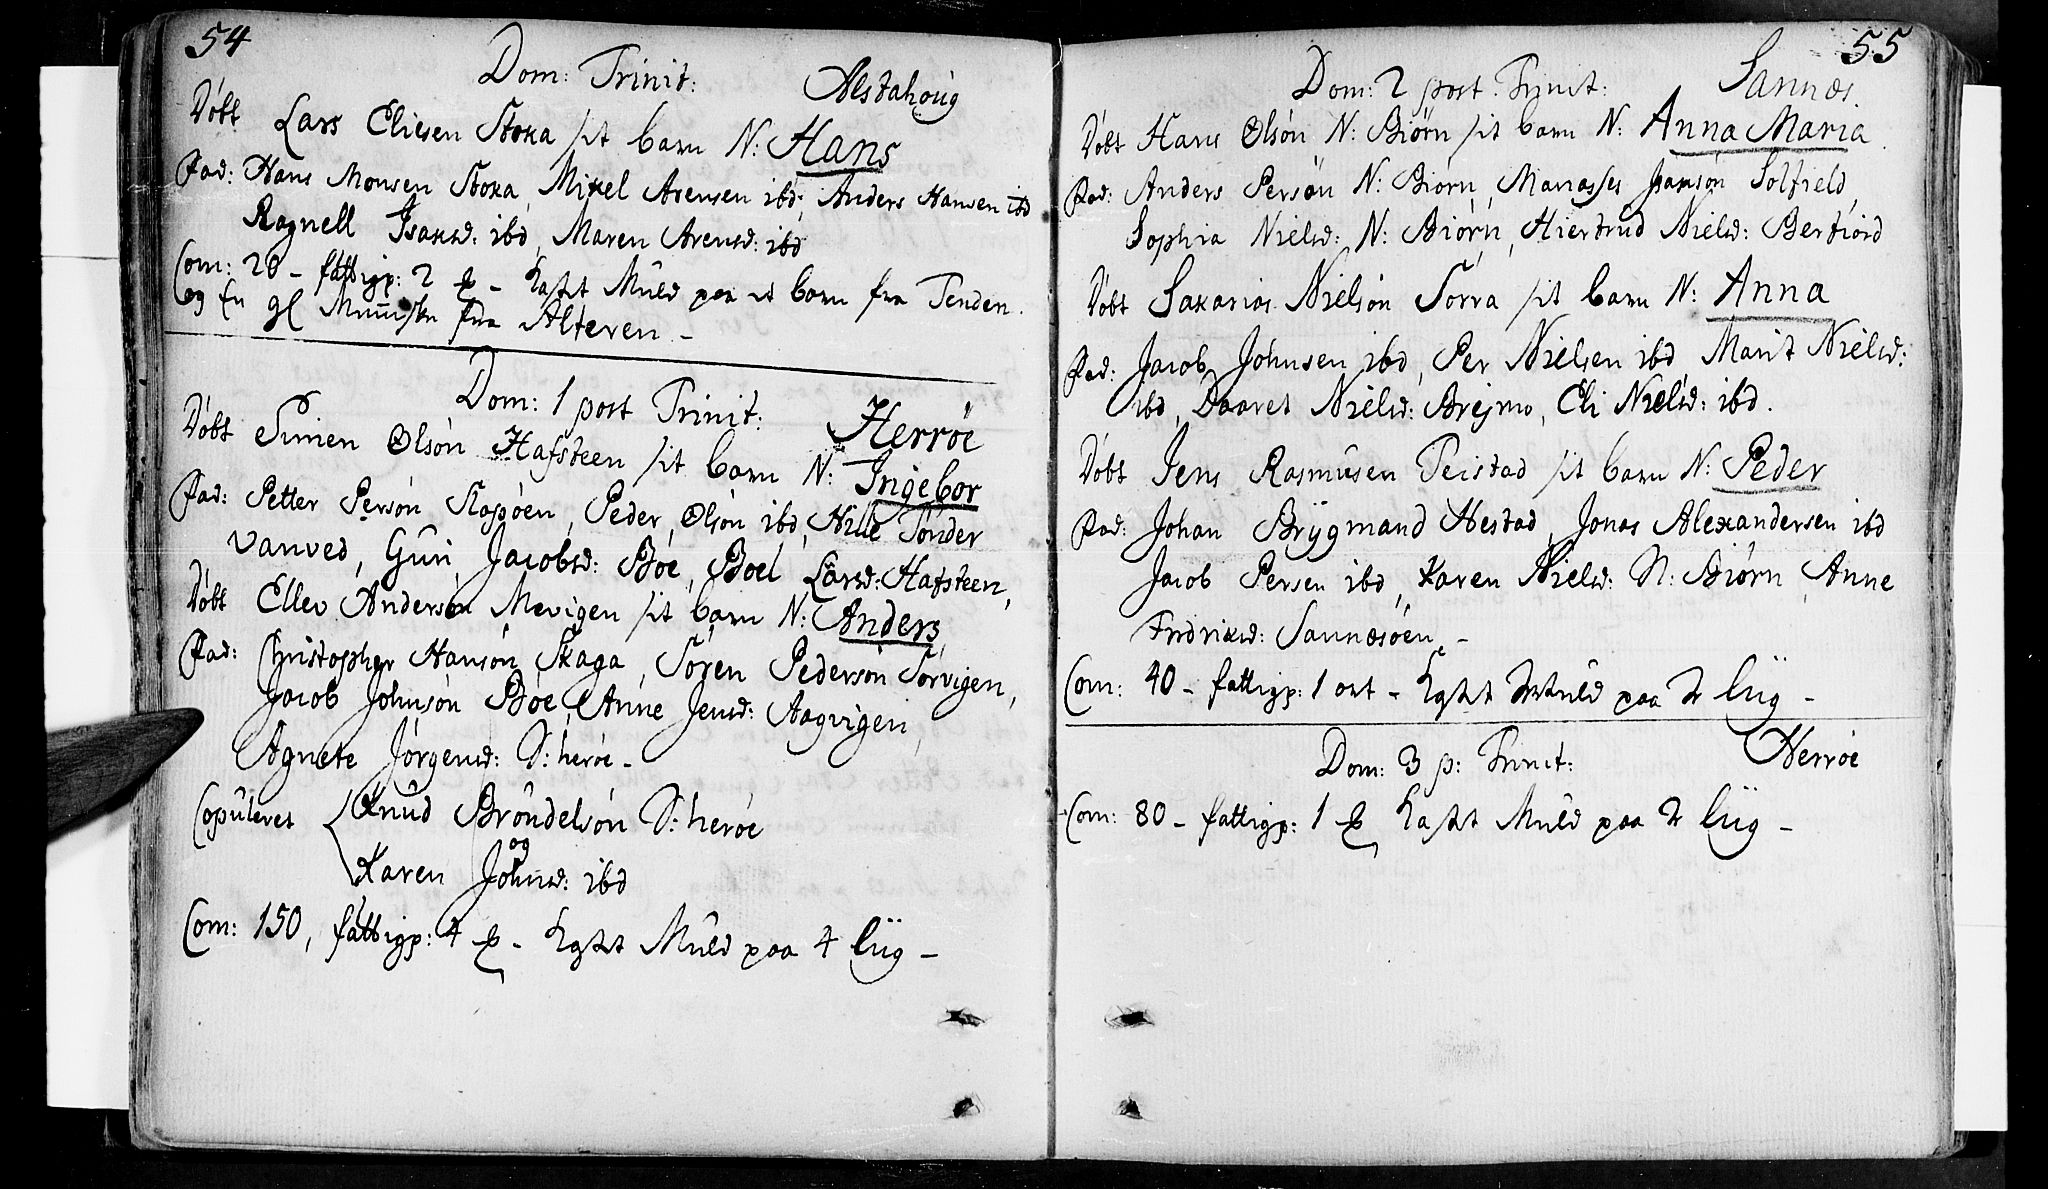 54
Dom: Trinit: Alstahoug
Døbt Lars Eliesen Stoxa sit barn N: Hans
Fad: Hans Monsen Stoxa, Mikel Arensen ibd, Anders Hansen ibd
Ragnell Isaksd: ibd, Maren Arensd: ibd
Com: 20 - fattigp: 2 ℔ - Kast Muld paa et barn fra Tenden.
og En gl Menniske fra Alteren -
Dom: 1 post Trinit: Herrøe
Døbt Simen Olsøn Hafsteen sit barn N: Ingebor
Fad: Petter Persøn Slapøen, Peder Olsøn ibd, Nille Sønder
vanved, Guri Jacobsd: Bøe, Boel Larsd: Hafsteen,
Døbt Ellev Andersøn Mevigen sit barn N: Anders
Fad: Christopher Hansøn Skaga, Søren Pedersøn Sørvigen,
Jacob Johnsøn Bøe, Anne Jensd: Aagvigen,
Agnete Jørgensd: S: herøe -
Copuleret Knud Brøndelsøn S: herøe
og
Karen Johnsd: ibd
Com: 150, fattigp: 4 ℔ - Kast Muld paa 4 liig -
55
Dom: 2 post Trinit: Sannæs.
Døbt Hans Olsøn N: Biørn sit barn N: Anna Maria.
Fad: Anders Persøn N: Biørn, Manasses Solfield,
Sophia Nielsd: N: Biørn, Hierdrud Nielsd: Berfiord
Døbt Sakarias Nielsøn Sørra sit barn N: Anna
Fad: Jacob Johnsen ibd, Per Nielsen ibd, Marit Nielsd:
ibd, Daaret Nielsd: Breimo, Eli Nielsd: ibd.
Døbt Jens Rasmusen Teistad sit barn N: Peder
Fad: Johan Brygmand Hestad, Jonas Alexandersen ibd
Jacob Persen ibd, Karen Nielsd: N: Biørn, Anne
Fredriksd: Sannæsøen, -
Com: 40 - fattigp: 1 ort - Kast Muld paa 2 liig -
Dom: 3 p: Trinit: Herrøe
Com: 80 - fattigp: 1 ℔ Kast Muld paa 2 liig -